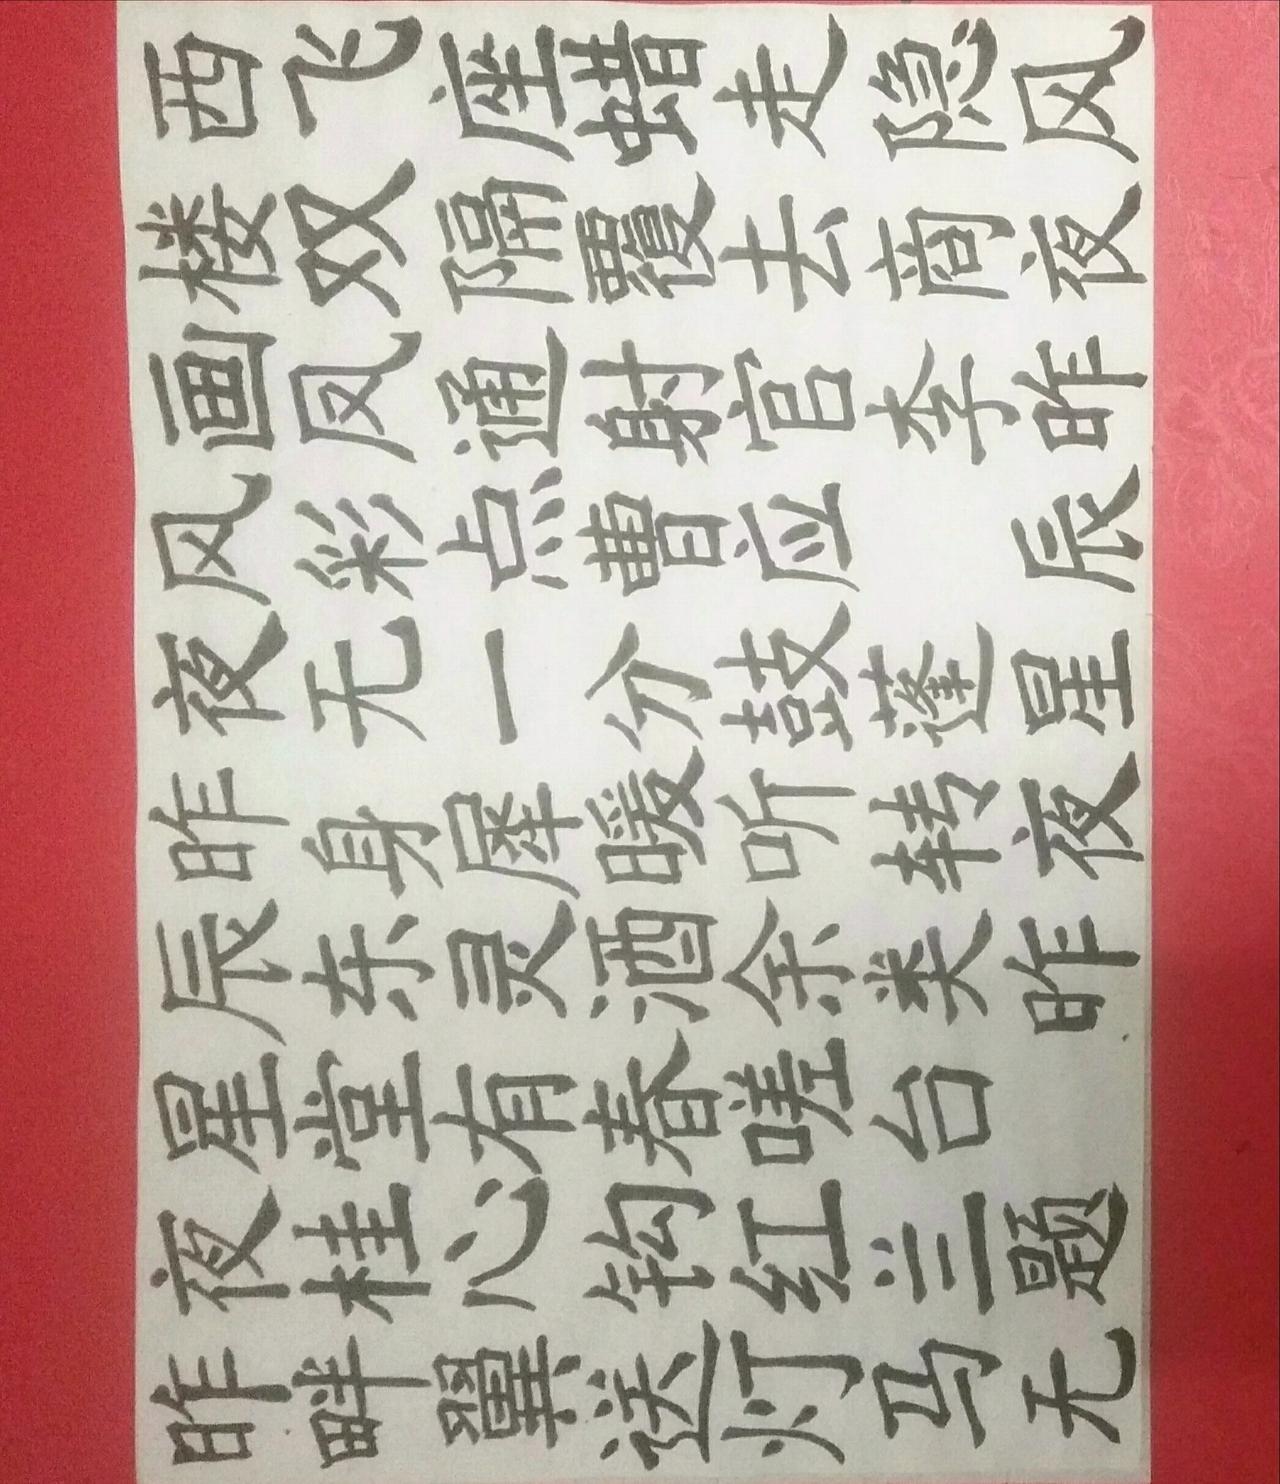 昨夜星辰昨夜风画楼西
畔桂堂东身无彩凤双飞
翼心有灵犀一点通隔座
送钩春酒暖分曹射覆蜡
灯红嗟余听鼓应官去走
马兰台类转蓬 李商隐
无题 昨夜星辰昨夜风